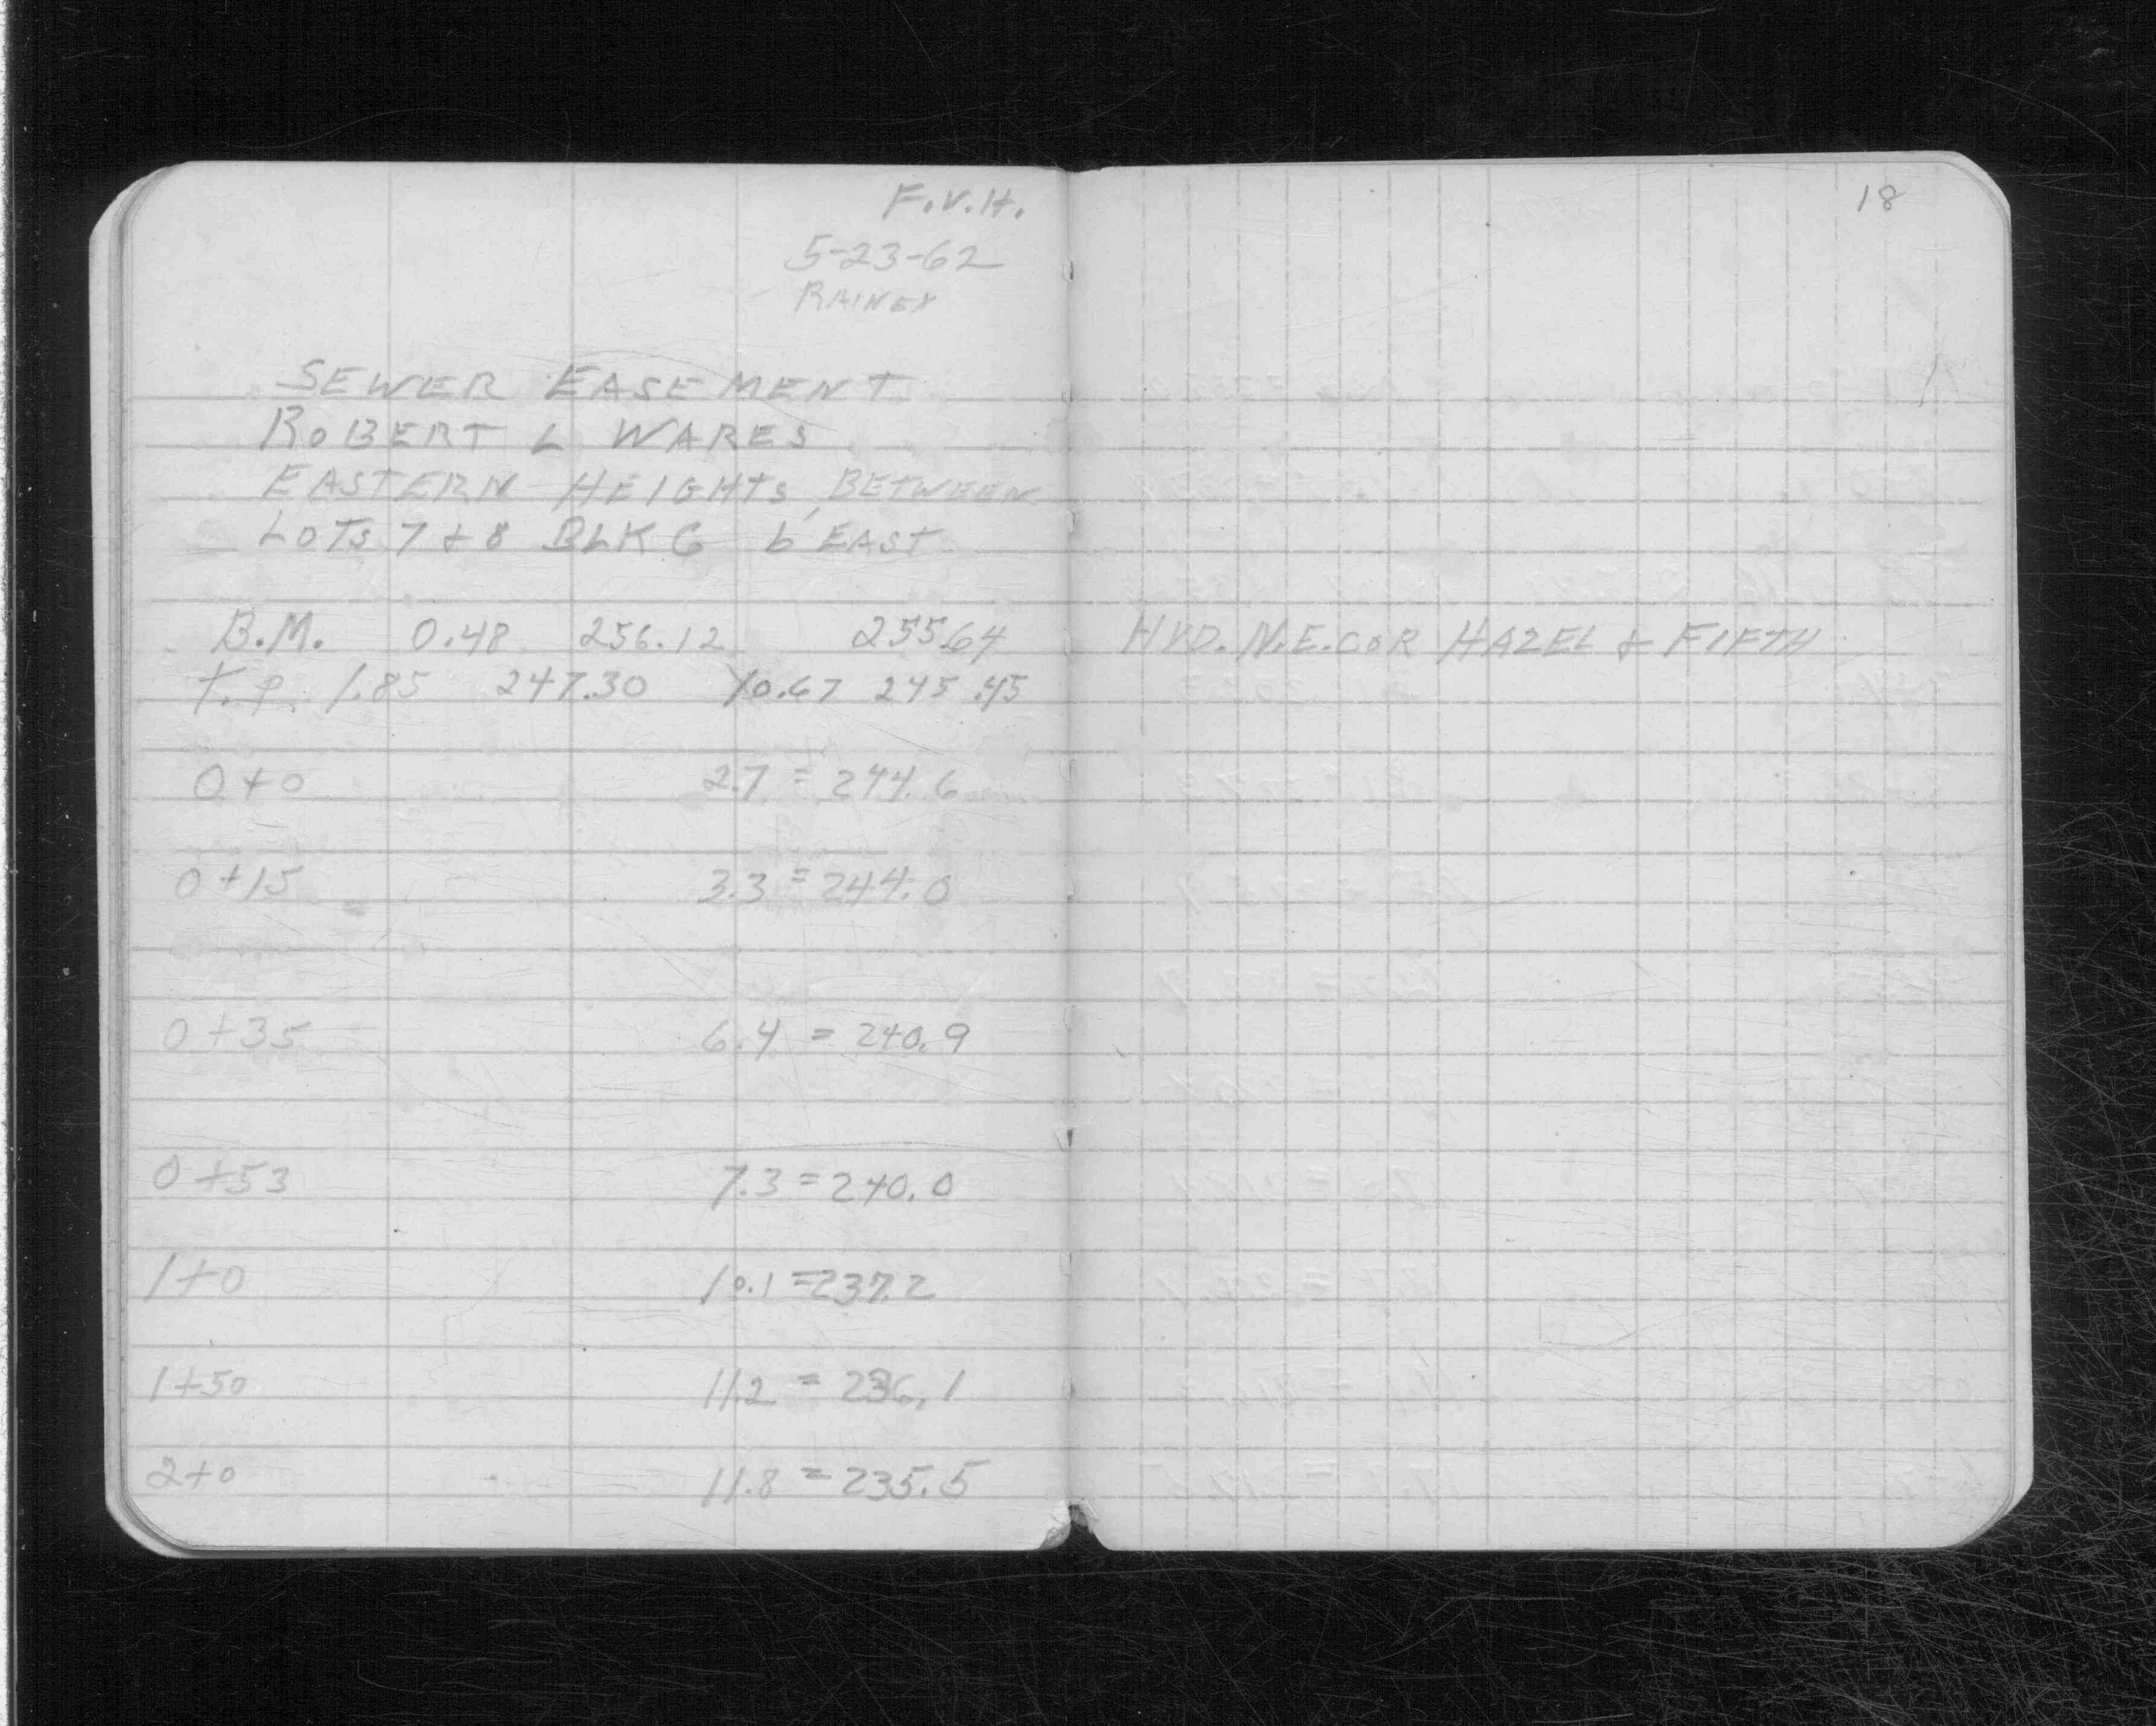 F.V.H.
5-23-62
RAINEY
SEWER EASEMENT
ROBERT L WARES
EASTERN HEIGHTS, BETWEEN
LOTS 7 + 8 BLK 6 6' EAST
B.M. 0.48 256.12 255.64
T.P. 1.85 247.30 10.67 245.45
0+0 2.7 = 244.6
0+15 3.3 = 244.0
0+35 6.4 = 240.9
0+53 7.3 = 240.0
1+0 10.1 = 237.2
1+50 11.2 = 236.1
2+0 11.8 = 235.5
18
HYD. N.E. COR HAZEL & FIFTH